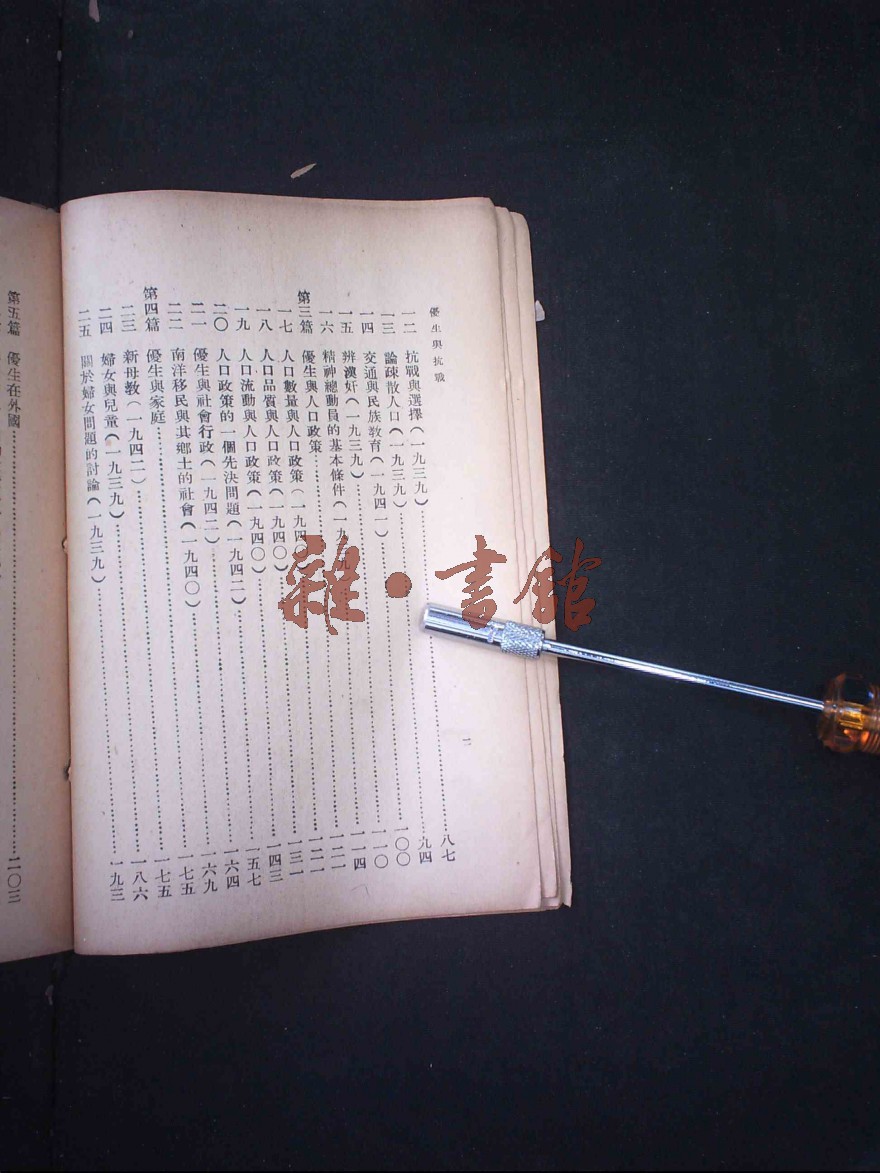 優生與抗戰
二
一二 抗戰與選擇(一九三九)……八七
一三 論疎散人口(一九三九)……九四
一四 交通與民族教育(一九四一)……一〇〇
一五 辨漢奸(一九三九)……一一〇
一六 精神總動員的基本條件(一九三九)……一一四
第三篇 優生與人口政策……一二一
一七 人口數量與人口政策(一九四〇)……一二一
一八 人口品質與人口政策(一九四〇)……一三一
一九 人口流動與人口政策(一九四〇)……一四三
二〇 人口政策的一個先決問題(一九四二)……一五七
二一 優生與社會行政(一九四二)……一六四
二二 南洋移民與其鄉土的社會(一九四〇)……一六九
第四篇 優生與家庭……一七五
二三 新母教(一九四二)……一七五
二四 婦女與兒童(一九三九)……一八六
二五 關於婦女問題的討論(一九三九)……一九三
第五篇 優生在外國……二〇三
雜·書館